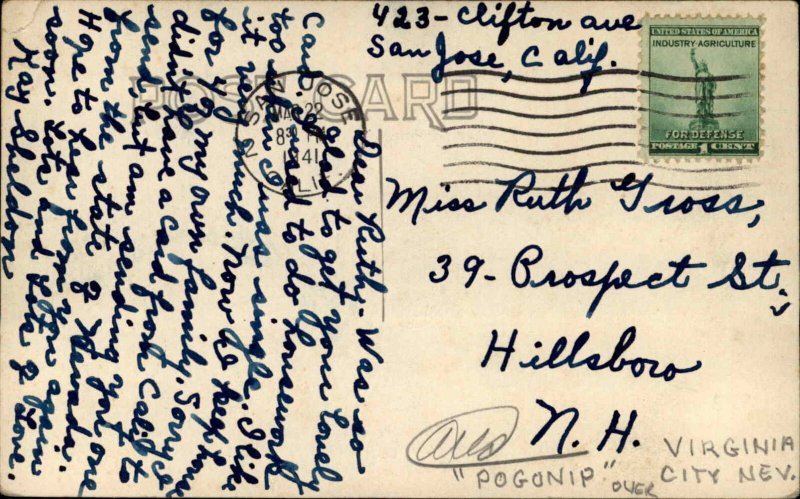 423 - Clifton ave
San Jose, Calif.
UNITED STATES OF AMERICA
INDUSTRY-AGRICULTURE
FOR DEFENSE
POSTAGE 1 CENT
POST CARD
SAN JOSE
MAR 22
1941
CALIF
Miss Ruth Gross,
39 - Prospect St.,
Hillsboro
N. H.
"POGONIP" OVER
VIRGINIA
CITY NEV.
Dear Ruthy - Was so
glad to get your lovely
Card. I used to do housework
too when I was single. I like
it very much. Now I keep house
for my own family. Sorry I
didn't have a card from Calif to
send, but am sending you one
from the state of Nevada.
Hope to hear from you again
soon. Lots and lots of love.
Kay Sheldon